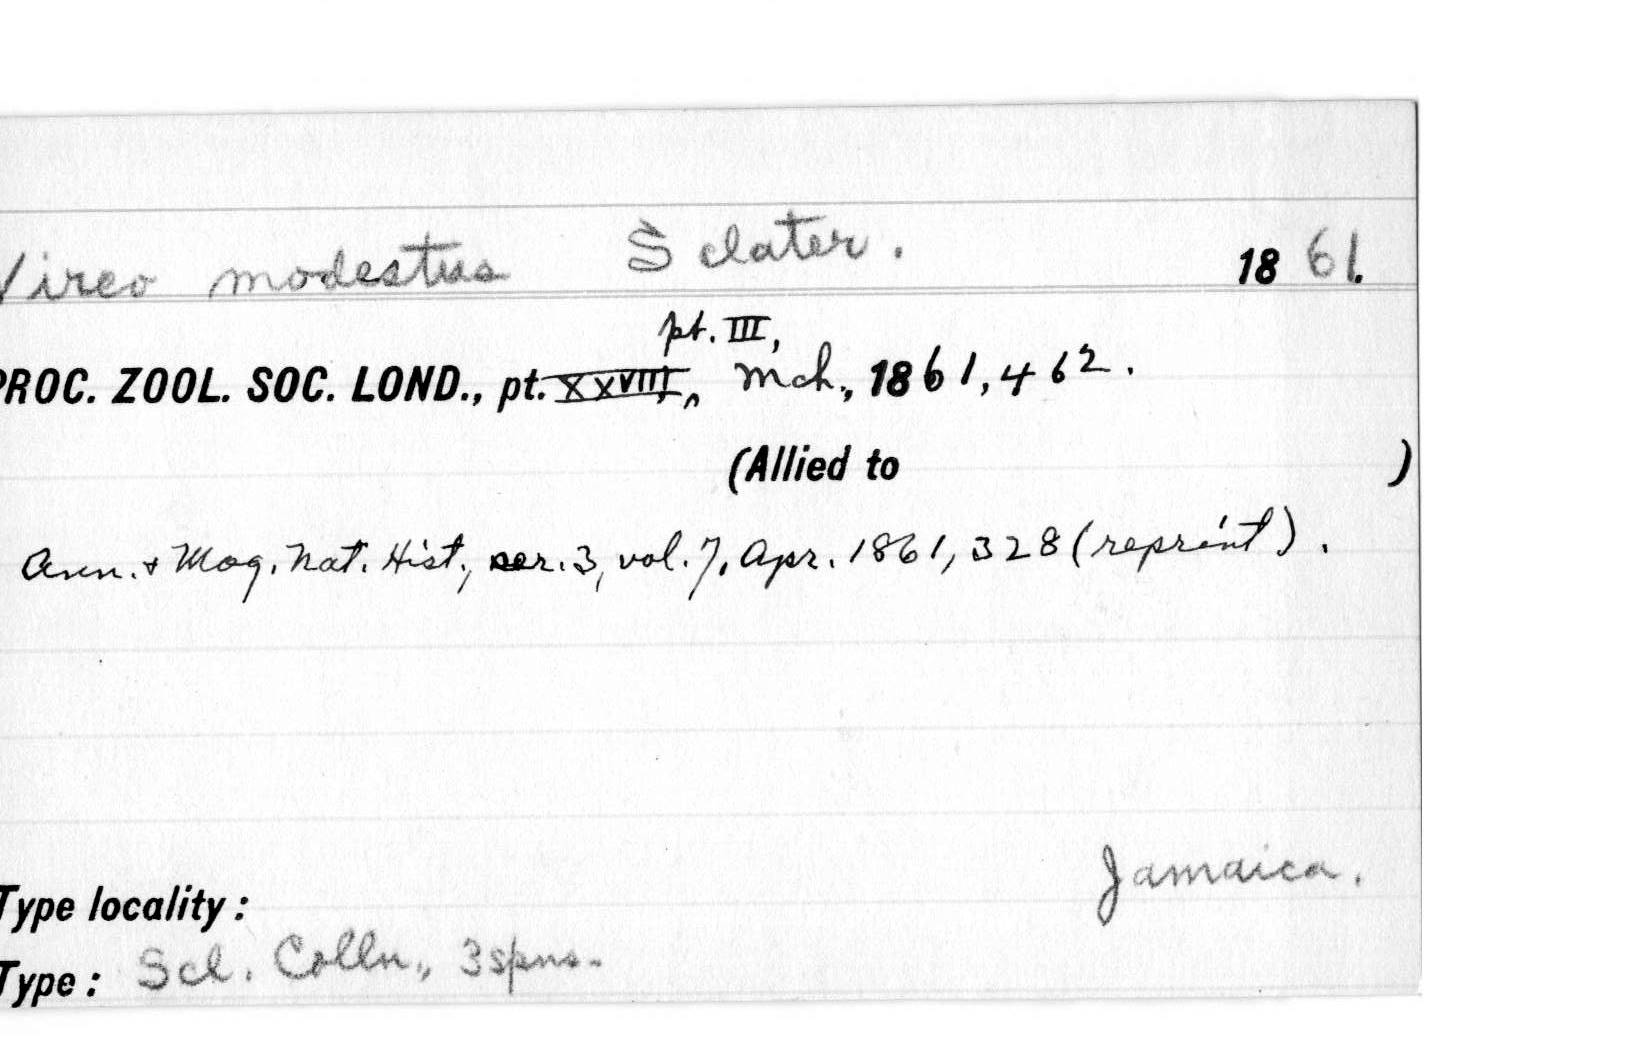 Vireo modestus Sclater. 1861.
pt. III,
PROC. ZOOL. SOC. LOND., pt. XXVIII, Mch., 1861, 462.
(Allied to )
Ann. & Mag. Nat. Hist., ser. 3, vol. 7, Apr. 1861, 328 (reprint).
Jamaica.
Type locality:
Type: Scl. Colln., 3 spns.